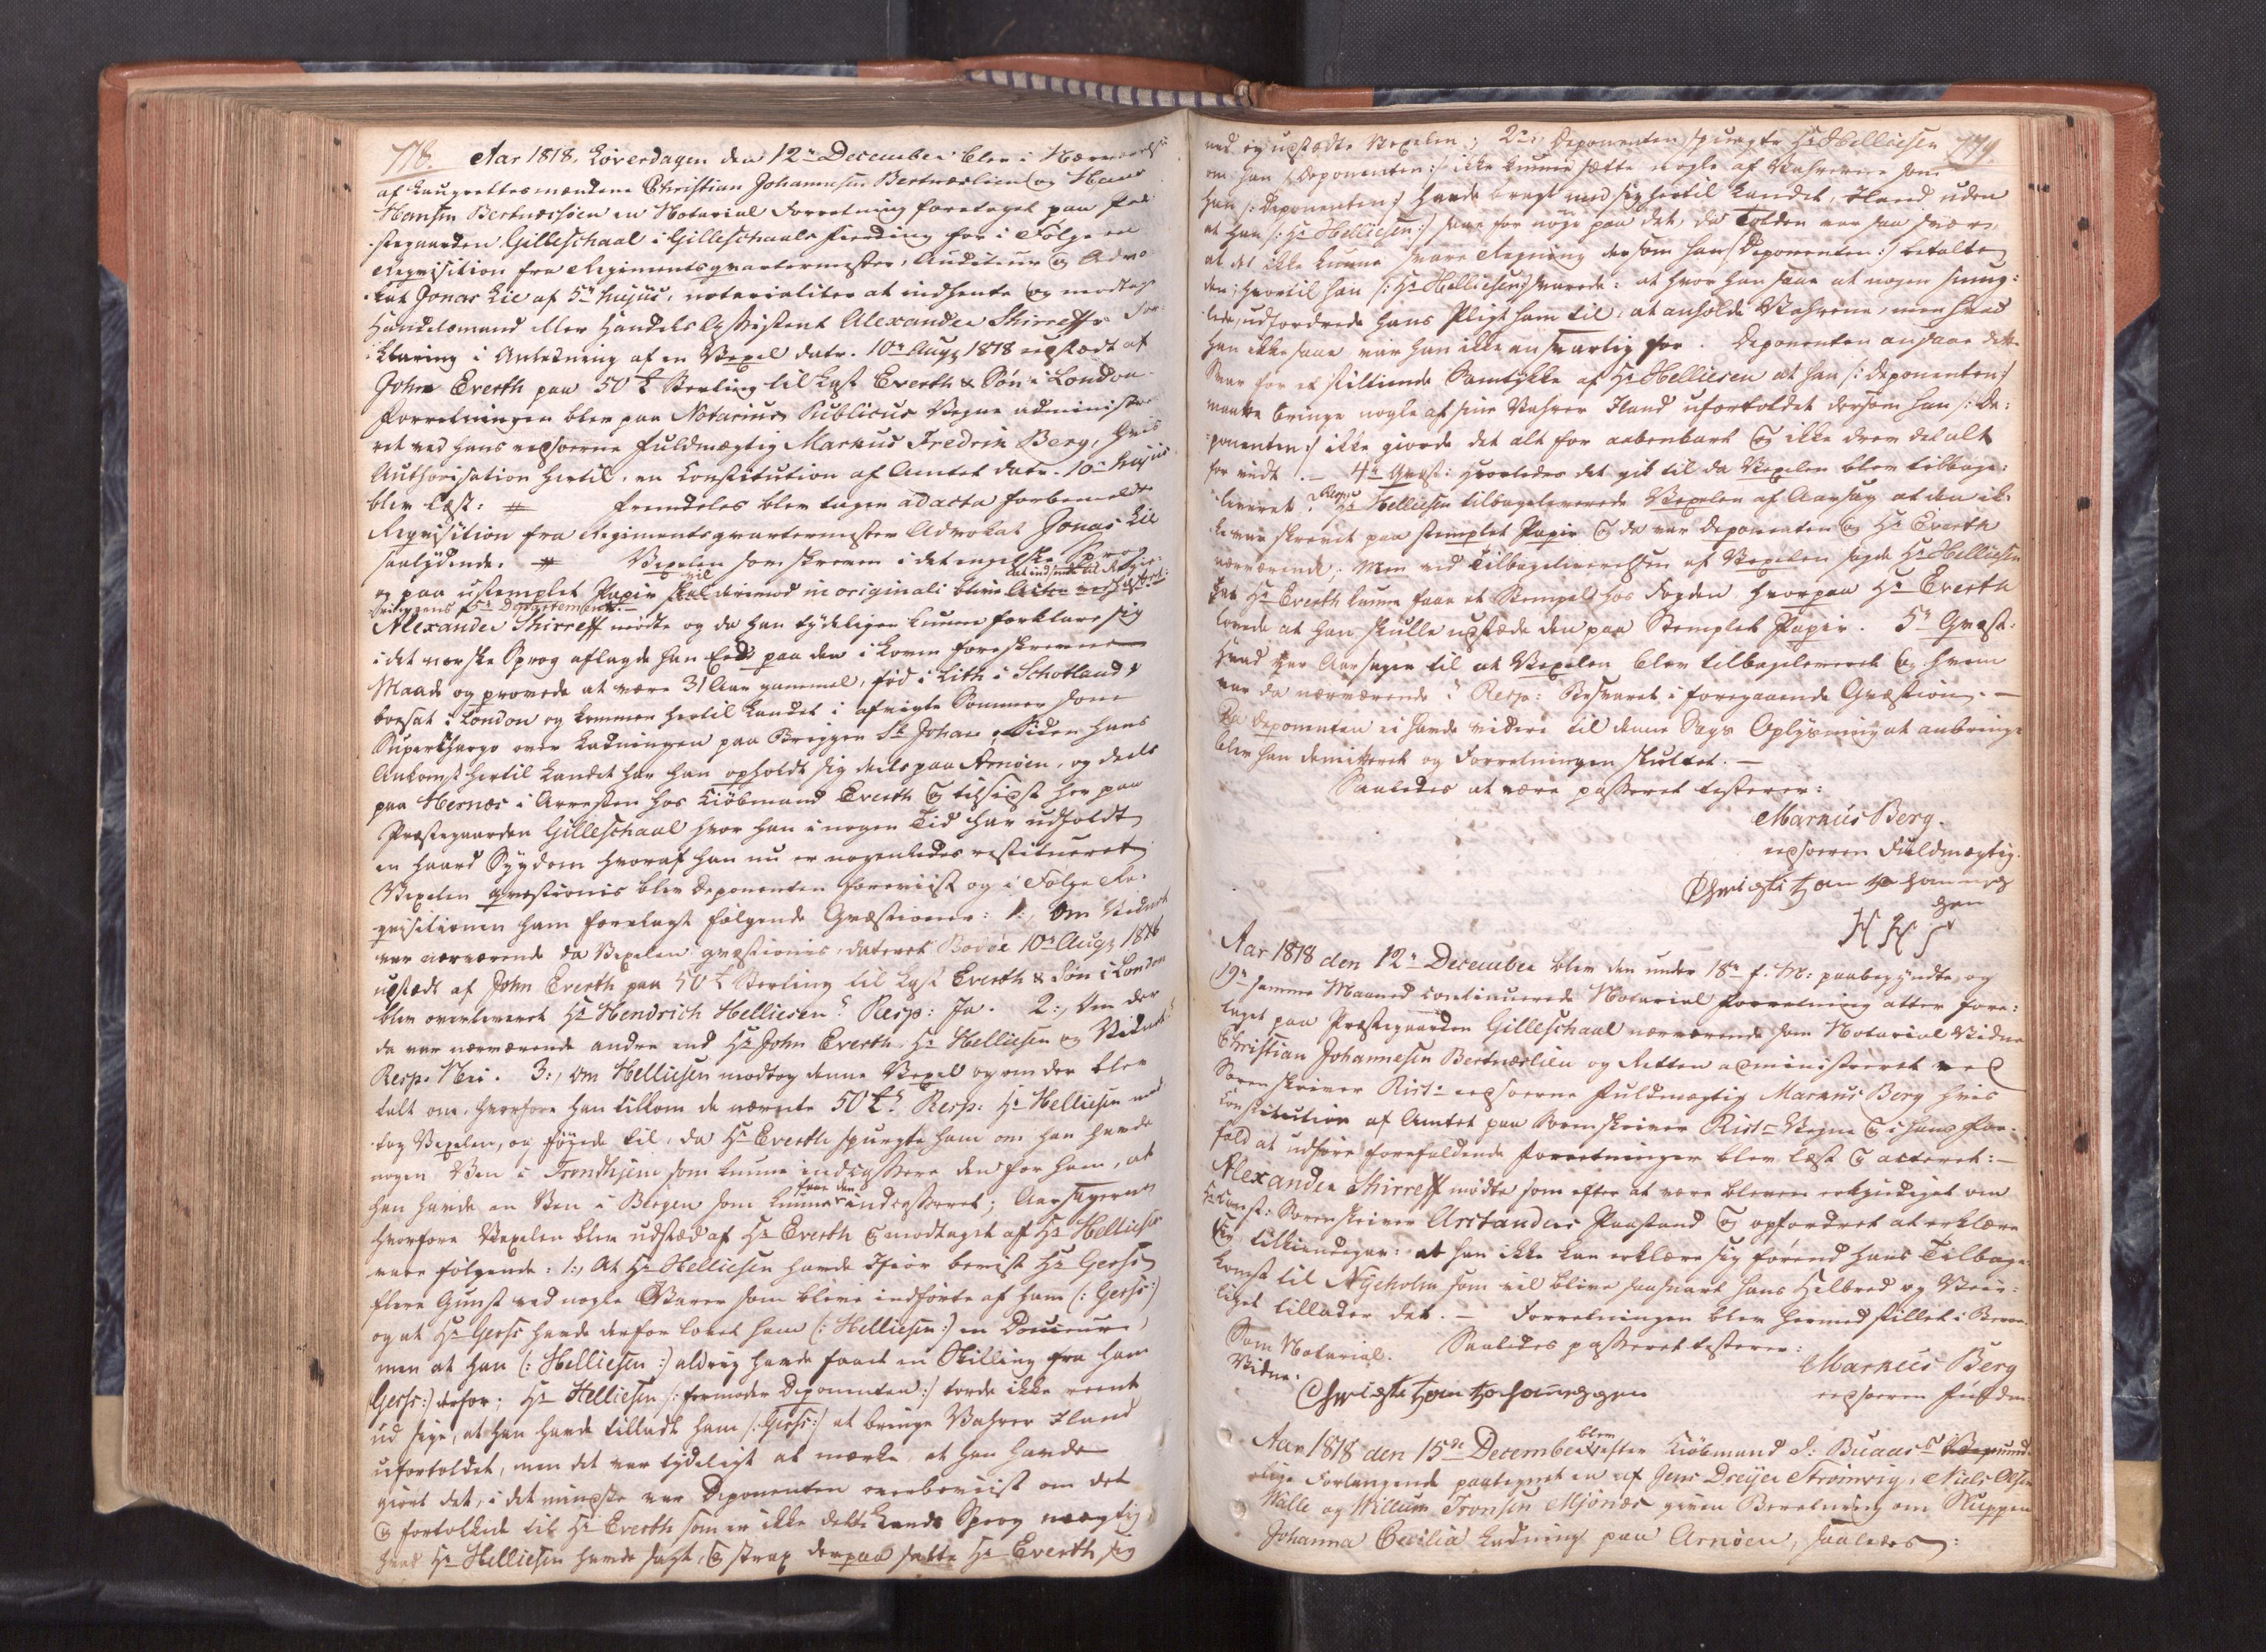 778.
Aar 1818, Löverdagen den 12te December blev i Nærværelse
af Laugrettesmændene Christian Johannesen Bertnæslien og Hans
Hansen Bertnæsöien en Notarial Forretning foretaget paa Præ-
stegaarden Gilleschaal i Gilleschaals Fierding for i Fölge en
Reqvisition fra Regimentsqvartermester, Auditeur og Advo-
kat Jonas Lie af 5te hujus, notarialiter at indhente og modtage
Handelsmand eller Handels Assistent Alexander Shirreffs For-
klaring i Anledning af en Vexel dato. 10de Aug. 1818 udstædt af
John Everth paa 50 £ Sterling til Lyst Everth & Sön i London.
Forretningen blev paa Notarius Publicus Vegne administre-
ret ved hans eedsoerne Fuldmægtig Markus Fredrik Berg, hvis
Authorisation hertil, en Constitution af Amtet dato. 10de hujus
blev læst: # Fremdeles blev tagen ad acta forbemeldte
Reqvisition fra Regimentsqvartermester Advokat Jonas Lie
saalydende. # Vexelen som skreven i det engelske Sprog
og paa ustemplet Papir vil derimod in originali blive Acten vedhæftet
at indsende til Regje-
ringens 5te Departement.
Alexander Shirreff mödte og da han tydeligen kunne forklare sig
i det norske Sprog aflagde han Eed paa den i Loven foreskrevne
Maade og provede at være 31 Aar gammel, föd i Lith i Schotland,
boesat i London og kommen hertil Landet i afvigte Sommer som
Superchargo over Ladningen paa Briggen St Johan, Siden hans
Ankomst hertil Landet har han opholdt sig deels paa Arnöen, og deels
paa Hernæs i Arresten hos Kiöbmand Everth og tilsidst her paa
Præstegaarden Gilleschaal hvor han i nogen Tid har udholdt
en haard Sygdom hvoraf han nu er nogenledes restitueret
Vexelen qvæstionis blev Deponenten foreviist og i Fölge Re-
qvisitionen ham forelagt fölgende Qvæstioner: 1:, Om Vidnet
var nærværende da Vexelen qvæstionis, dateret Bodöe 10de Aug. 1818
udstædt af John Everth paa 50 £ Sterling til Lyst Everth & Sön i London
blev overleveret Hr Hendrich Helliesen? Resp: Ja. 2:, Om der
da var nærværende andre end Hr John Everth, Hr Helliesen og Vidnet?
Resp. Nei. 3:, Om Helliesen modtog denne Vexel og om der blev
talt om, hvorfore han tilkom de nævnte 50 £? Resp: Hr Helliesen mod-
tog Vexelen, og föyede til, da Hr Everth spurgte ham om han havde
nogen Ven i Trondhjem som kunne indcassere den for ham, at
han havde en Ven i Bergen som kunne faae den indcasseret; Aarsagerne
hvorfore Vexelen blev udstæd af Hr Everth og modtaget af Hr Helliesen
vare fölgende: 1:, At Hr Helliesen havde Ifior beviist Hr Gerss
flere Gunst ved nogle Varer som blive indförte af ham (: Gerss:)
og at Hr Gerss havde derfor lovet ham (: Helliesen:) en Douceur,
men at han (: Helliesen :) aldrig havde faaet en Skilling fra ham
(Gerss:) derfor; Hr Helliesen /: formoder Deponenten :/ torde ikke reent
ud sige, at han havde tilladt ham /: Gerss:/ at bringe Vahrer Iland
ufortoldet, men det var tydeligt at mærke, at han havde
giort det, i det mindste var Deponenten overbeviist om det
og fortolkede til Hr Everth som er ikke dette Lands Sprog mægtig
hvad Hr Helliesen havde sagt, og strax derpaa satte Hr Everth sig
779
ned og udstædte Vexelen; 2de, Deponenten spurgte Hr Helliesen
om han /: Deponenten:/ ikke kunne sætte nogle af Vahrerne som
han /: Deponenten:/ havde bragt med sig hertil Landet, Iland uden
at han /: Hr Helliesen:/ saae for nöye paa det, da Tolden var saa svær,
at det ikke kunne svare Regning dersom han /: Deponenten:/ betalte
den; hvortil han /: Hr Helliesen:/ svarede: at hvor han saae at nogen smug-
lede, udfordrede hans Pligt ham til, at anholde Vahrene, men hvad
han ikke saae var han ikke ansvarlig for. Deponenten ansaae dette
Svar for et stiltiende Samtykke af Hr Helliesen at han /: Deponenten:/
maatte bringe nogle af sine Vahrer Iland ufortoldet dersom han /: De-
ponenten:/ ikke giorde det alt for aabenbart og ikke drev det alt
for vidt. — 4de Qvæst: Hvorledes det gik til da Vexelen blev tilbage-
leveret? Resp: Hr Helliesen tilbageleverede Vexelen af Aarsag at den ik-
ke var skrevet paa stemplet Papir og da var Deponenten og Hr Everth
nærværende; Men ved Tilbageleverelsen af Vexelen sagde Hr Helliesen
at Hr Everth kunne faae et Stempel hos Fogden hvorpaa Hr Everth
lovede at han skulle udstæde den paa Stemplet Papir. 5te Qvæst:
Hvad var Aarsagen til at Vexelen blev tilbageleveret og hvem
var da nærværende? Resp: Besvaret i foregaaende Qvæstion. —
Da Deponenten ei havde videre til denne Sags Oplysning at anbringe
blev han demitteret og Forretningen sluttet. —
Saaledes at være passeret testerer:
Markus Berg.
eedsoeren Fuldmægtig.
Christian Johannes
sen
H H S
Aar 1818 den 12te December blev den under 18de f. M: paabegyndte, og
19de samme Maaned continuerede Notarial Forretning atter fore-
taget paa Præstegaarden Gilleschaal nærværende som Notarial Vidne
Christian Johannesen Bertnæslien og Retten administreret ved
Sorenskriver Rists eedsoerne Fuldmægtig Markus Berg hvis
Constitution af Amtet paa Sorenskriver Rists Vegne og i hans For-
fald at udföre forefaldende Forretninger blev læst og acteret: —
Alexander Shirreff mödte som efter at være bleven erkyndiget om
Hr Const: Sorenskriver Arctanders Paastand og opfordret at erklære
sig tilkiendegav: at han ikke kan erklære sig förend hans Tilbage-
komst til Nyeholm som vil blive saasnart hans Helbred og Veir-
liget tillader det. — Forretningen blev hermed stillet i Beroe.
Som Notarial. Saaledes passeret testerer:
Vidne:
Markus Berg
Christian Johannessen
eedsoeren Fuldm.
Aar 1818 den 15de December blev efter Kiöbmand J: Buaas
Forlangende paategnet en af Jens Dreyer Strömvig, Niels Olsen
Valle og Willum Tronsen Mjönæs given Beretning om Skuppen
Johanna Cecilia Ladning paa Arnöen, saaledes: